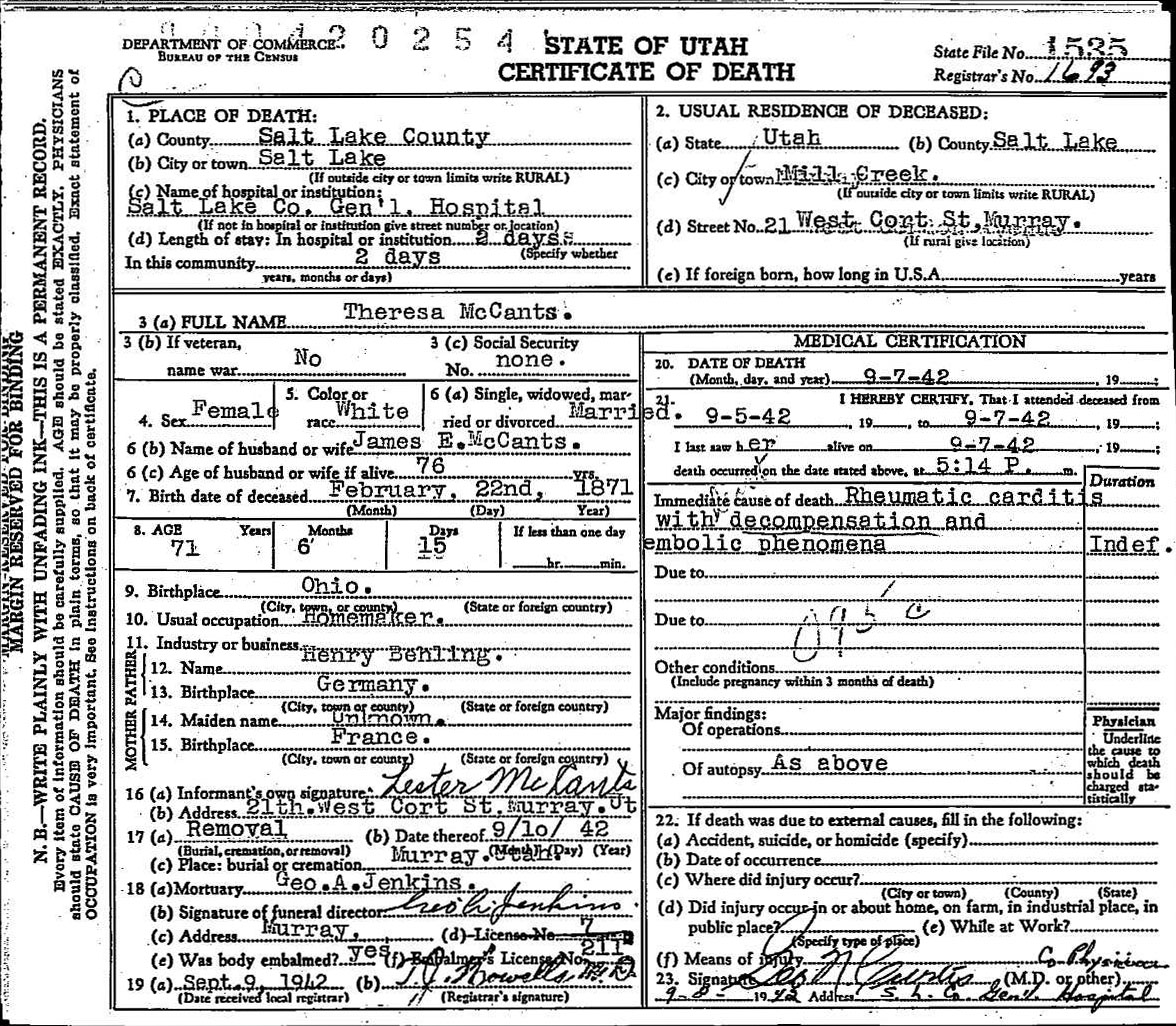 DEPARTMENT OF COMMERCE
BUREAU OF THE CENSUS
20254
STATE OF UTAH
CERTIFICATE OF DEATH
State File No. 1535
Registrar's No. 1693
MARGIN RESERVED FOR BINDING
N. B.—WRITE PLAINLY WITH UNFADING INK—THIS IS A PERMANENT RECORD.
Every item of information should be carefully supplied. AGE should be stated EXACTLY. PHYSICIANS
should state CAUSE OF DEATH in plain terms, so that it may be properly classified. Exact statement of
OCCUPATION is very important. See Instructions on back of certificate.
1. PLACE OF DEATH:
(a) County Salt Lake County
(b) City or town Salt Lake
(If outside city or town limits write RURAL)
(c) Name of hospital or institution:
Salt Lake Co. Gen'l. Hospital
(If not in hospital or institution give street number or location)
(d) Length of stay: In hospital or institution 2 dayss
(Specify whether
In this community 2 days
years, months or days)
2. USUAL RESIDENCE OF DECEASED:
(a) State Utah (b) County Salt Lake
(c) City or town Mill Creek.
(If outside city or town limits write RURAL)
(d) Street No. 21 West Cort St, Murray.
(If rural give location)
(e) If foreign born, how long in U.S.A. years
3 (a) FULL NAME Theresa McCants.
3 (b) If veteran,
name war. No
3 (c) Social Security
No. none.
4. Sex Female
5. Color or
race White
6 (a) Single, widowed, mar-
ried or divorced Married.
6 (b) Name of husband or wife James E.McCants.
6 (c) Age of husband or wife if alive 76 yrs.
7. Birth date of deceased February, 22nd, 1871
(Month) (Day) Year)
8. AGE Years Months Days If less than one day
71 6 15
hr. min.
9. Birthplace Ohio.
(City, town, or county) (State or foreign country)
10. Usual occupation Homemaker.
11. Industry or business
FATHER
12. Name Henry Behling.
13. Birthplace Germany.
(City, town or county) (State or foreign country)
MOTHER
14. Maiden name Unknown.
15. Birthplace France.
(City, town or county) (State or foreign country)
16 (a) Informant's own signature: Lester McCants
(b) Address 21th.West Cort St.Murray.Ut
17 (a) Removal (b) Date thereof 9/10/ 42
(Burial, cremation, or removal) (Month) (Day) (Year)
(c) Place: burial or cremation Murray.Utah.
18 (a) Mortuary Geo.A.Jenkins.
(b) Signature of funeral director Geo A Jenkins
(c) Address Murray, (d) License No. 7
(e) Was body embalmed? yes (f) Embalmer's License No. 211
19 (a) Sept. 9, 1942 (b)
(Date received local registrar) (Registrar's signature)
MEDICAL CERTIFICATION
20. DATE OF DEATH
(Month, day, and year) 9-7-42 , 19 ;
21. I HEREBY CERTIFY, That I attended deceased from
9-5-42 , 19 , to 9-7-42 , 19 ;
I last saw her alive on 9-7-42 , 19 ;
death occurred on the date stated above, at 5:14 P. m.
Duration
Immediate cause of death Rheumatic carditis
with decompensation and
embolic phenomena Indef.
Due to
Due to
095 c
Other conditions
(Include pregnancy within 3 months of death)
Major findings:
Of operations
Of autopsy As above
Physician
Underline
the cause to
which death
should be
charged sta-
tistically
22. If death was due to external causes, fill in the following:
(a) Accident, suicide, or homicide (specify)
(b) Date of occurrence
(c) Where did injury occur?
(City or town) (County) (State)
(d) Did injury occur in or about home, on farm, in industrial place, in
public place? (e) While at Work?
(Specify type of place)
(f) Means of injury Co Physician
23. Signature Geo N Curtis (M.D. or other)
9-8- 1942 Address S. L. Co Gen'l Hospital